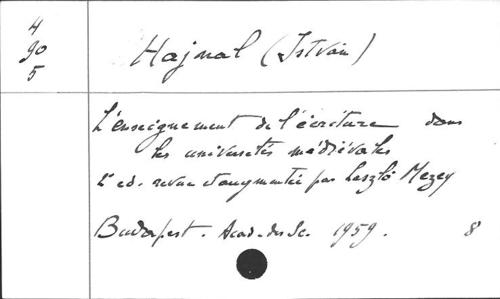 4
90
5
Hajnal (István)
L'enseignement de l'écriture dans
les universités médiévales
2e ed. revue et augmentée par László Mezey
Budapest. Acad. des Sc. 1959. 8